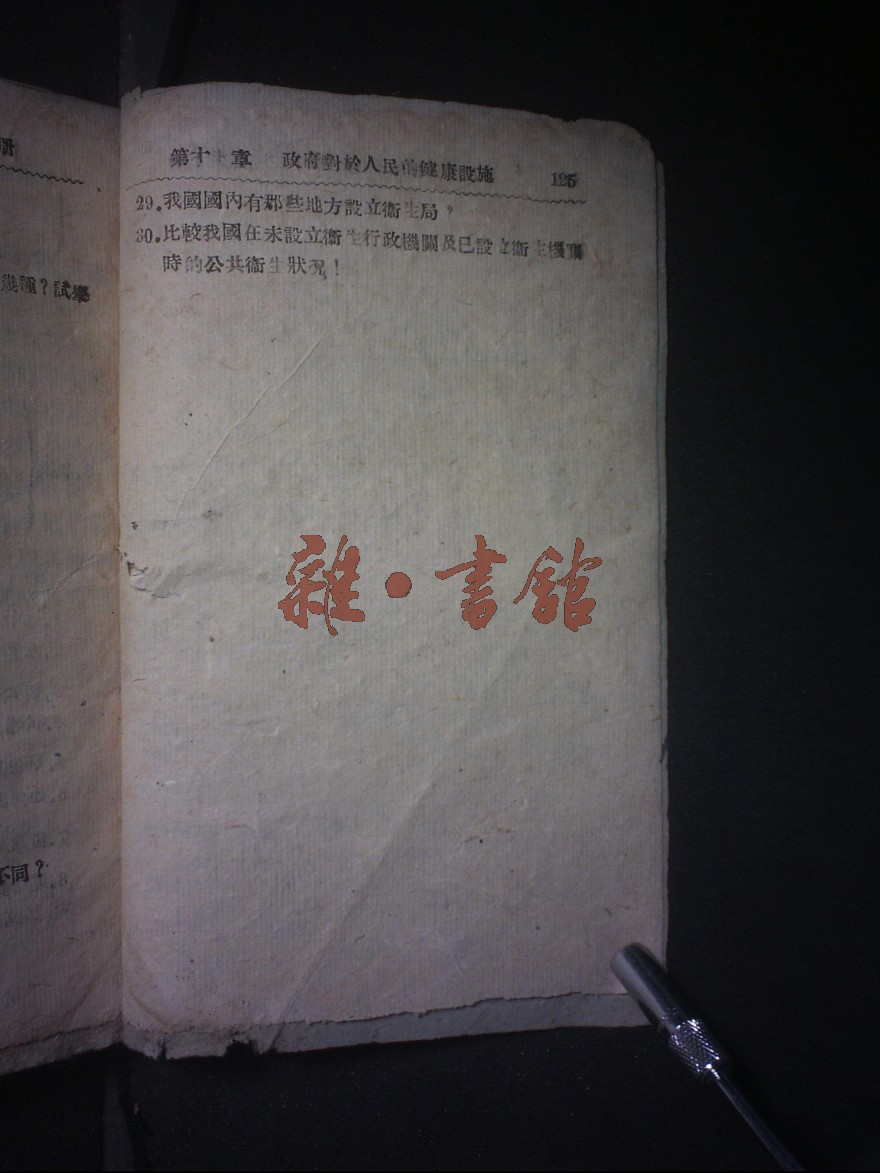 第十章 政府對於人民的健康設施 125
29.我國國內有那些地方設立衞生局？
30.比較我國在未設立衞生行政機關及已設立衞生機關
時的公共衞生狀况！
幾種？試舉
不同？
雜·書館